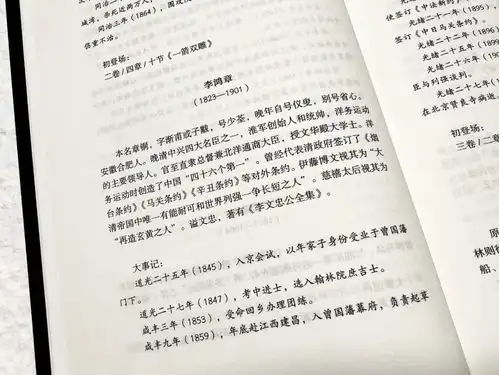 城湾，吾死近两万人
同治三年（1864），国戏
倍重不治。
初登场：
二卷/四章/十节《一箭双雕》
李鸿章
（1823—1901）
本名章铜，字渐甫或子黻，号少荃，晚年自号仪叟，别号省心。
安徽合肥人。晚清中兴四大名臣之一，淮军创始人和统帅，洋务运动
的主要领导人。官至直隶总督兼北洋通商大臣，授文华殿大学士。洋
务运动时创造了中国“四十六个第一”。曾经代表清政府签订了《烟
台条约》《马关条约》《辛丑条约》等对外条约。伊藤博文视其为“大
清帝国中唯一有能耐可和世界列强一争长短之人”。慈禧太后视其为
“再造玄黄之人”。谥文忠，著有《李文忠公全集》。
大事记：
道光二十五年（1845），入京会试，以年家子身份受业于曾国藩
门下。
道光二十七年（1847），考中进士，选入翰林院庶吉士。
咸丰三年（1853），受命回乡办理团练。
咸丰九年（1859），年底赴江西建昌，入曾国藩幕府，负责起草
使签订《中法新约》
光绪二十一年（1895），
签订《中日马关条约》
光绪二十二年（1896）
光绪二十五年（
光绪二十六年（
光绪二十七年（
臣与列强谈判。
光绪二十七年（
在北京贤良寺病逝，
初登场：
三卷/二章
原
林则徐
船、